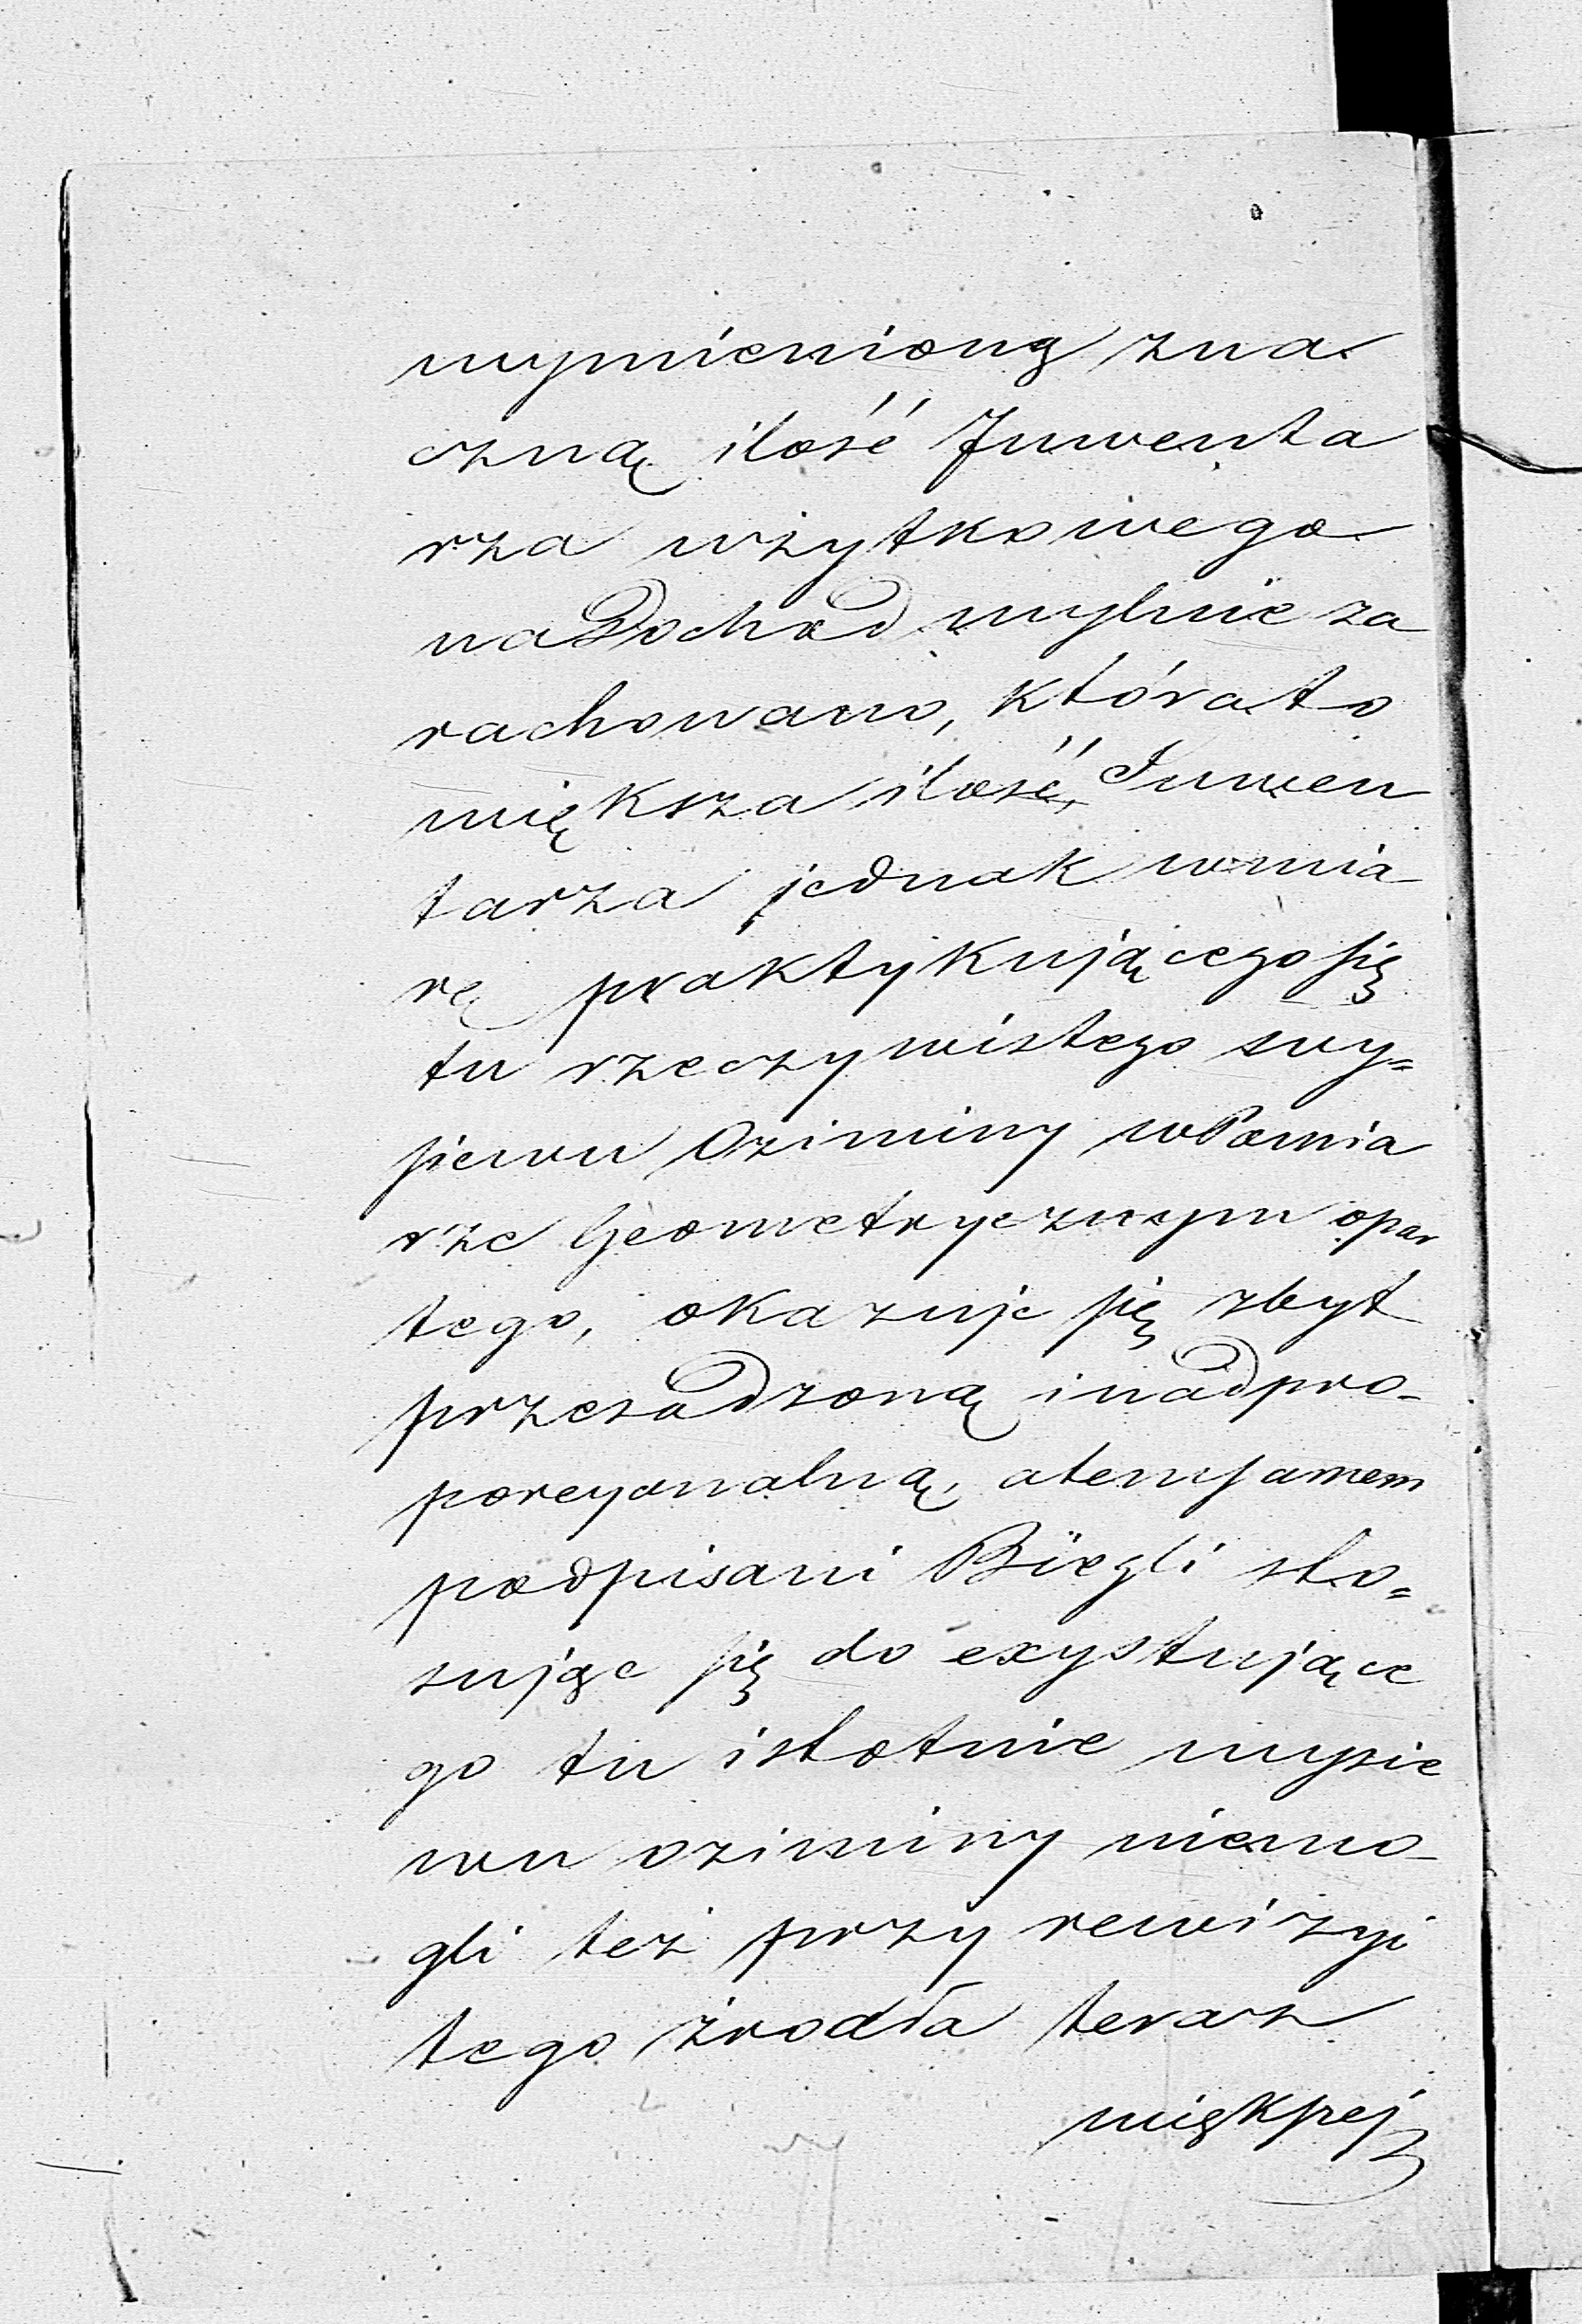 wymienioną zna
czną ilość Inwenta
rza użytkowego
na Dochod mylnie za
rachowano, która to
większa ilość Inwen
tarza jednak wmia
rę praktykującego się
tu rzeczywistego wy=
siewu Oziminy w Pomia
rze Geometrycznym opar
tego, okazuje się zbyt
przesadzoną i nadpro-
porcyonalną, atemsamem
podpisani Biegli sto=
sując się do exystujące
go tu istotnie wysie
wu oziminy niemo-
gli też przy rewizyi
tego źrodła teraz
większej